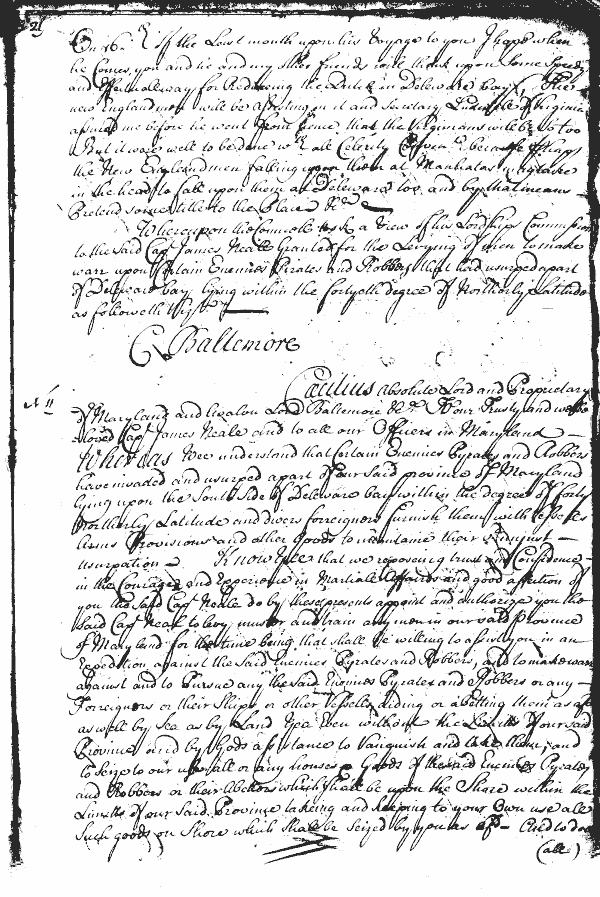 21
of the Last month upon his Voyage to you I hope when
he Comes, you and he and my other friends will think upon Some Speedy
and Effectual way for Reduceing the Dutch in Delaware bay, The
new England men will be assisting in it and Secretary of Virginia
assured me before he went from hence that the Virginians will be So too
But it were well to be done with all Celerity because perhaps
the New England men falling upon them at Manhatas may take
in their head to fall upon them at Delaware too, and by that means
Pretend some title to the Place &c
Whereupon the Councell took a View of his Lordships Commission
to the Said Capt James Neale Granted for the Levying of men to make
warr upon Certain Enemies Pirates and Robbers that had usurped a part
of Delaware bay lying within the fortyeth degree of Northerly Latitude
as followeth Vizt
C Baltemore
N 11
Cæcilius absolute Lord and Proprietary
of Maryland and Avalon Lord Baltemore &c To our Trusty and well
beloved Capt James Neale and to all our Officers in Maryland
Whereas Wee understand that Certain Enemies Pyrates and Robbers
have invaded and usurped a part of our Said province of Maryland
lying upon the South Side of Delaware bay within the degree of forty
Northerly Latitude and divers foreigners furnish them with Vessells
Arms Provisions and other Goods to maintaine their Unjust
usurpation Know Yee that we reposeing trust and Confidence
in the Courage and Experience in Martiall Affairs and good affection of
you the Said Capt Neale do by these presents appoint and authorize you the
Said Capt Neale to levy, muster and train any men in our said Province
of Maryland for the time being that shall be willing to assist you in an
Expedition against the Said Enemies Pyrates and Robbers, and to make warr
against and to Pursue any the Said Enemies Pyrates and Robbers or any
Foreigners or their Ships or other Vessells aiding or abetting them as
as well by Sea as by Land Yea Even without the Limitts of our said
Province and by Gods assistance to Vanquish and take them, and
to Seize to our use all or any houses Goods of the said Enemies Pyrates
and Robbers or their abettors which Shall be upon the Shore within the
Limitts of our Said Province takeing and keeping to your Own use all
Such goods on Shore which Shall be Seized by you as And to doe
(all)